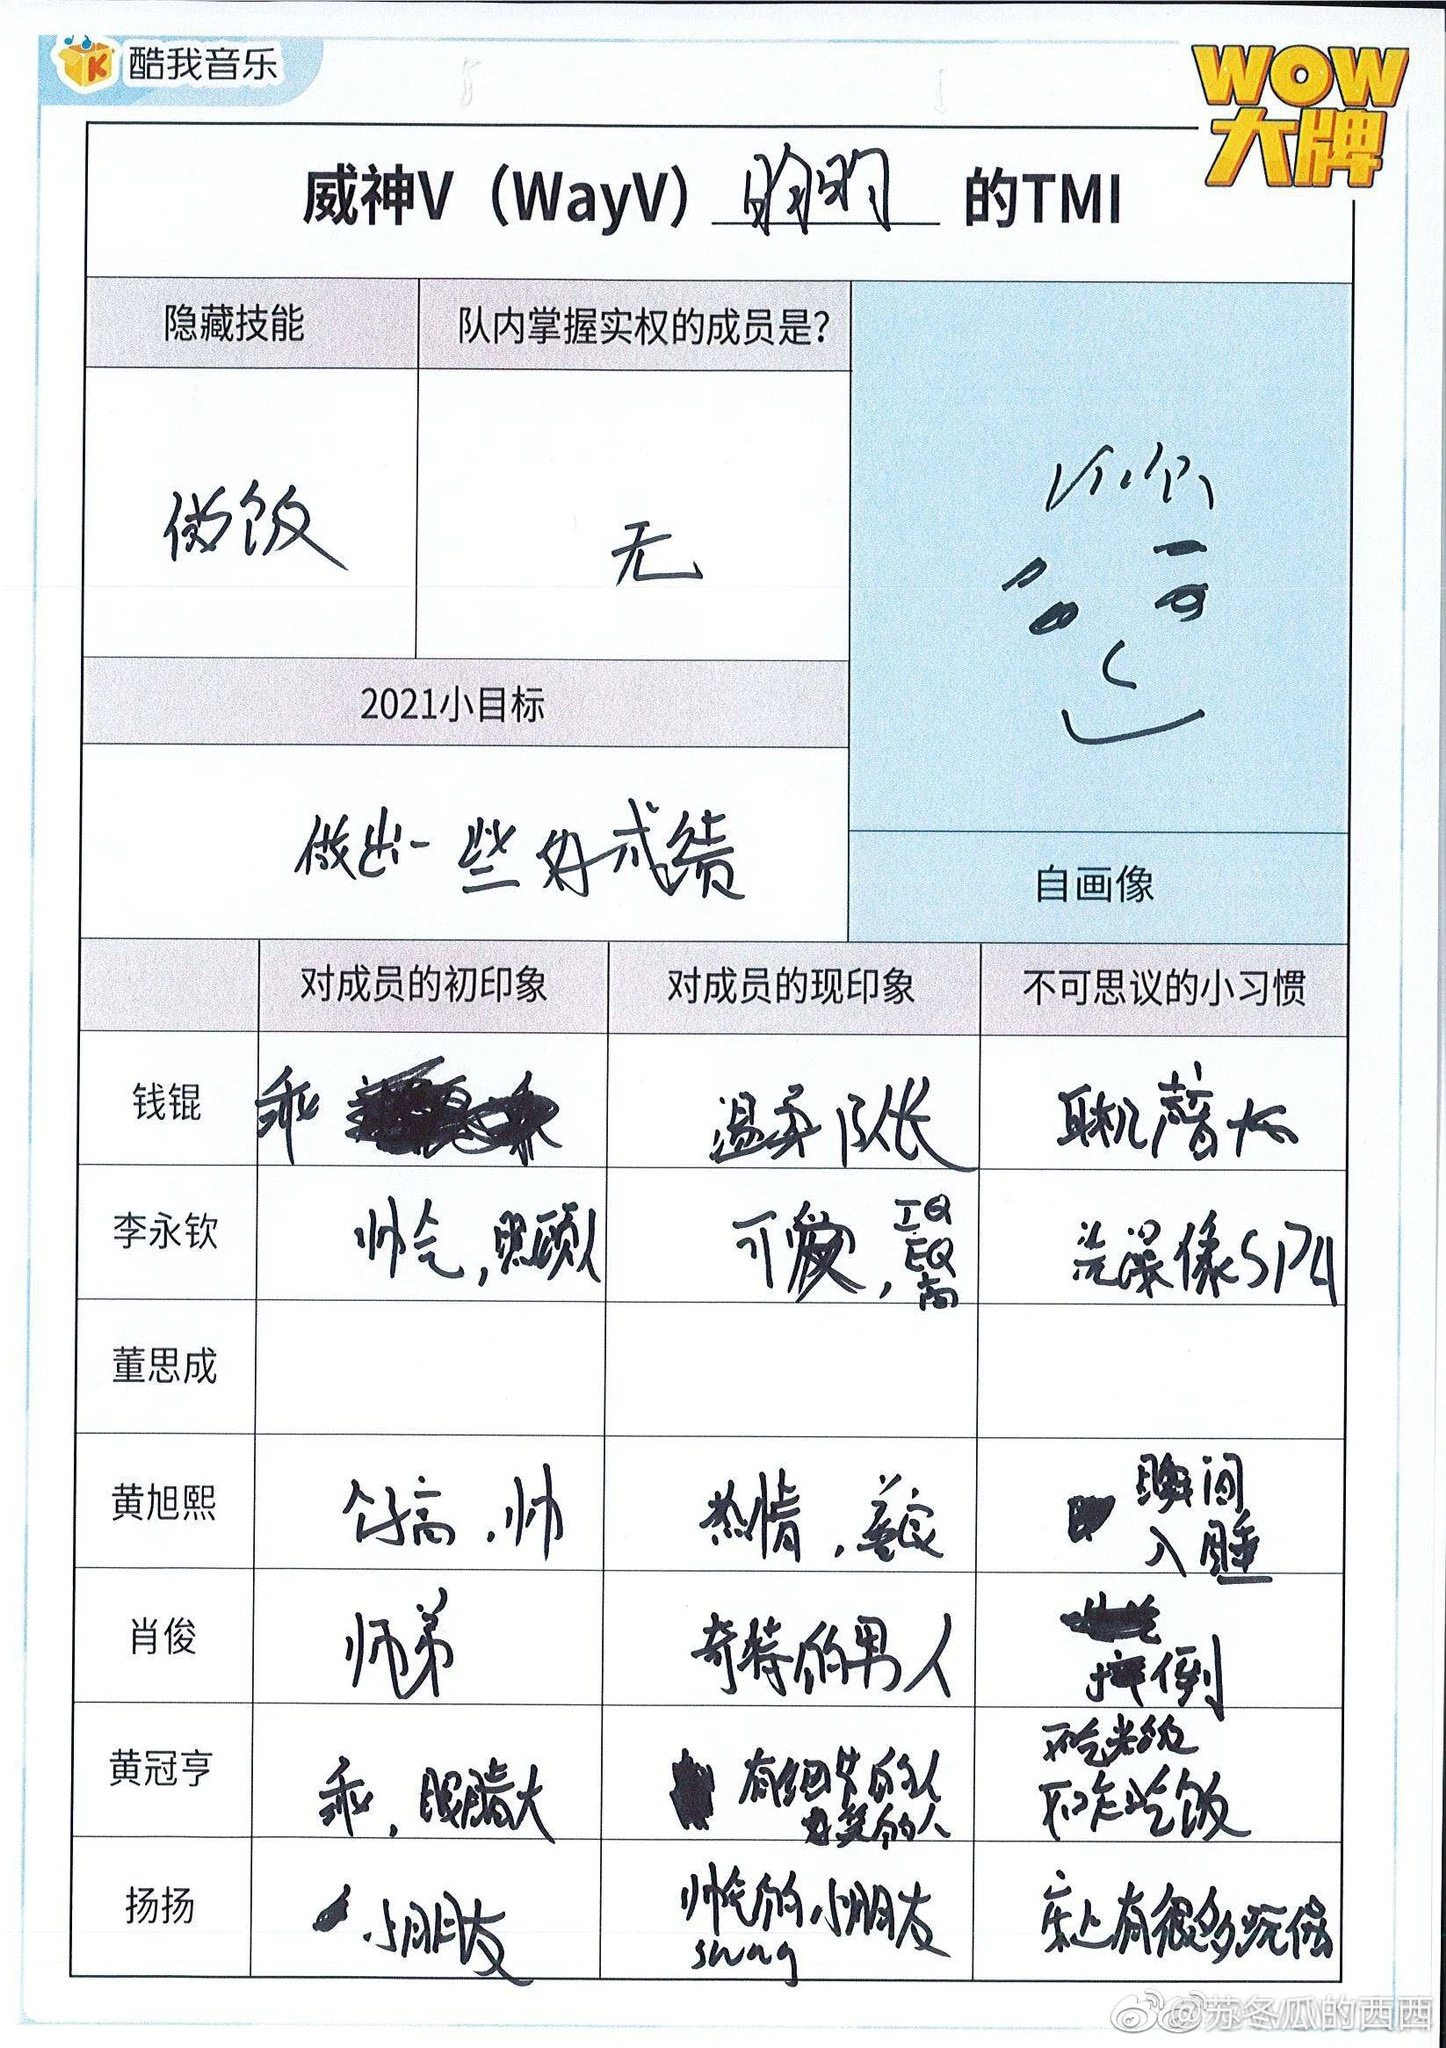 酷我音乐
WOW
大牌
威神V（WayV） 昀昀 的TMI
隐藏技能
队内掌握实权的成员是？
做饭
无
2021小目标
做出一些好成绩
自画像
对成员的初印象
对成员的现印象
不可思议的小习惯
钱锟
乖
温柔队长
耳机声音大
李永钦
帅气，照顾人
可爱，IQ
EQ
高
洗澡像SPA
董思成
黄旭熙
个子高，帅
热情，善良
瞬间
入睡
肖俊
师弟
奇特的男人
摔倒
黄冠亨
乖，眼睛大
有细节的人
的人
不吃
不怎么吃饭
扬扬
小朋友
帅气的小朋友
swag
床上有很多玩偶
@苏冬瓜的西西